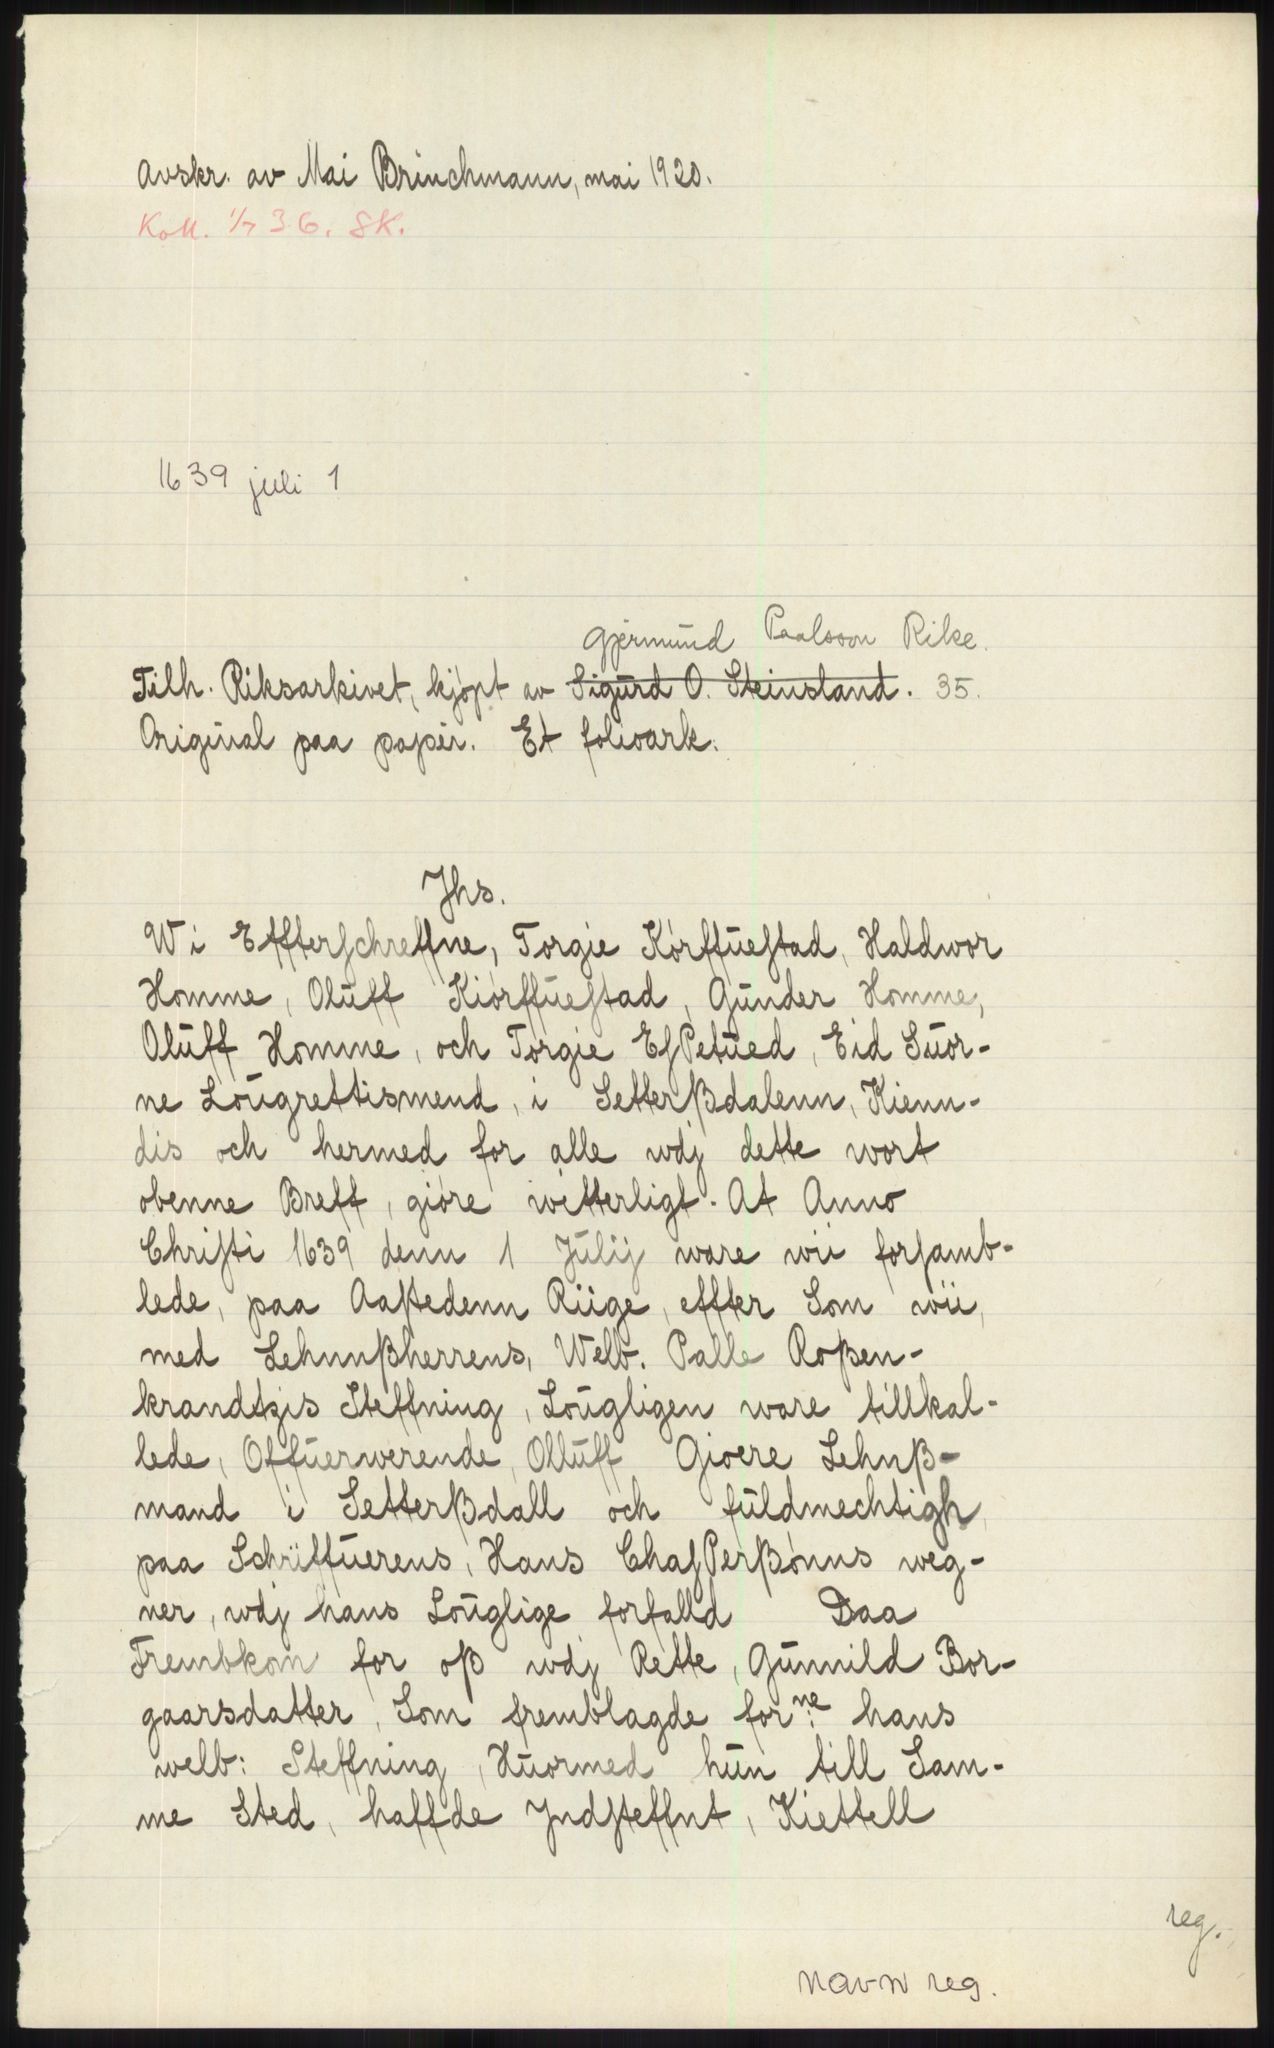 Avskr. av Mai Brinchmann, mai 1920.
Koll. 1/7 36. SK.
1639 juli 1
Gjermund Paalsson Rike.
Tilh. Riksarkivet, kjøpt av Sigurd O. Steinsland. 35.
Original paa papir. Et folioark.
Jhs.
Wi Effterſchreffne, Torgie Kórffueſtad, Haldwor
Homme, Oluff Kiórffueſtad, Gunder Homme,
Oluff Homme, och Torgie EſPetued, Eid Suor-
ne Lougrettismend, i Setterßdalenn, Kienn-
dis och hermed for alle wdj dette wort
obenne Breff, gióre witterligt. At Anno
Chriſti 1639 denn 1 Julij ware wii forſamb-
lede, paa Aaſtedenn Riige, effter Som wii,
med Lehnnßherrens, Welb. Palle Roßen-
krandtzis Steffning, Lougligen ware tillkal-
lede, Offuerwerende, Olluff Gioere Lehnß-
mand i Setterßdall och fuldmechtigh
paa Schriffuerens, Hans Chaſperßónns weg-
ner, wdj hans Louglige forfalld Daa
Frembkom for oß wdj Rette, Gunnild Bor-
gaarsdatter, Som fremblagde forne: hans
welb: Steffning, Huormed hun till Sam-
me Sted, haffde Jndſteffnt, Kiettell
reg.
Navn reg.